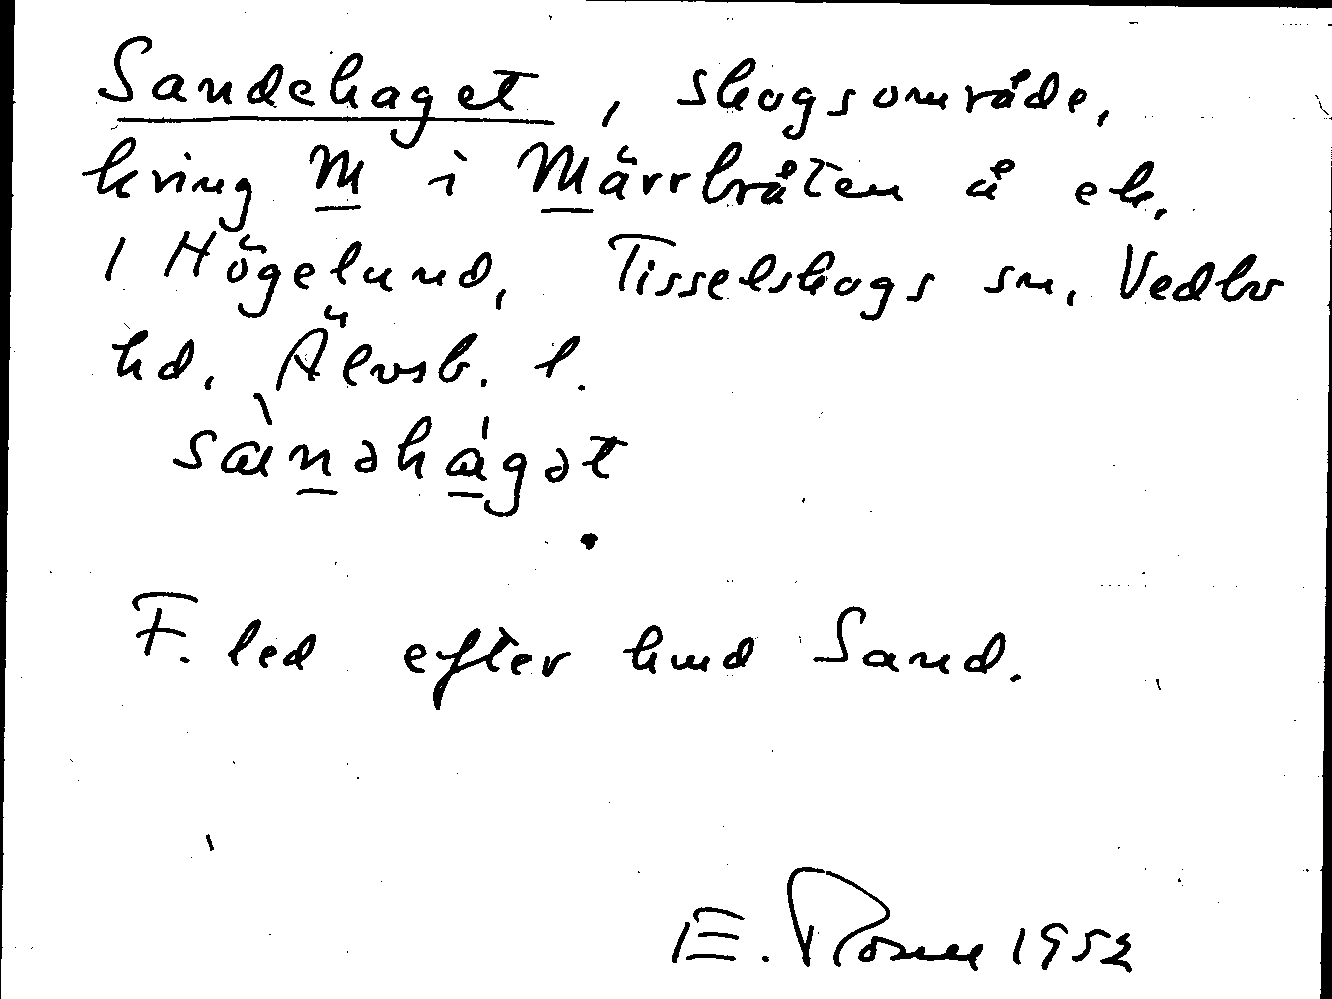 Sandehaget, skogsområde,
kring M i Märrbråten å ek.
1 Högelund, Tisselskogs sn, Vedbo
hd, Älvsb. l.
sànəhágət
F. led efter hmd Sand.
E. Rosell 1952